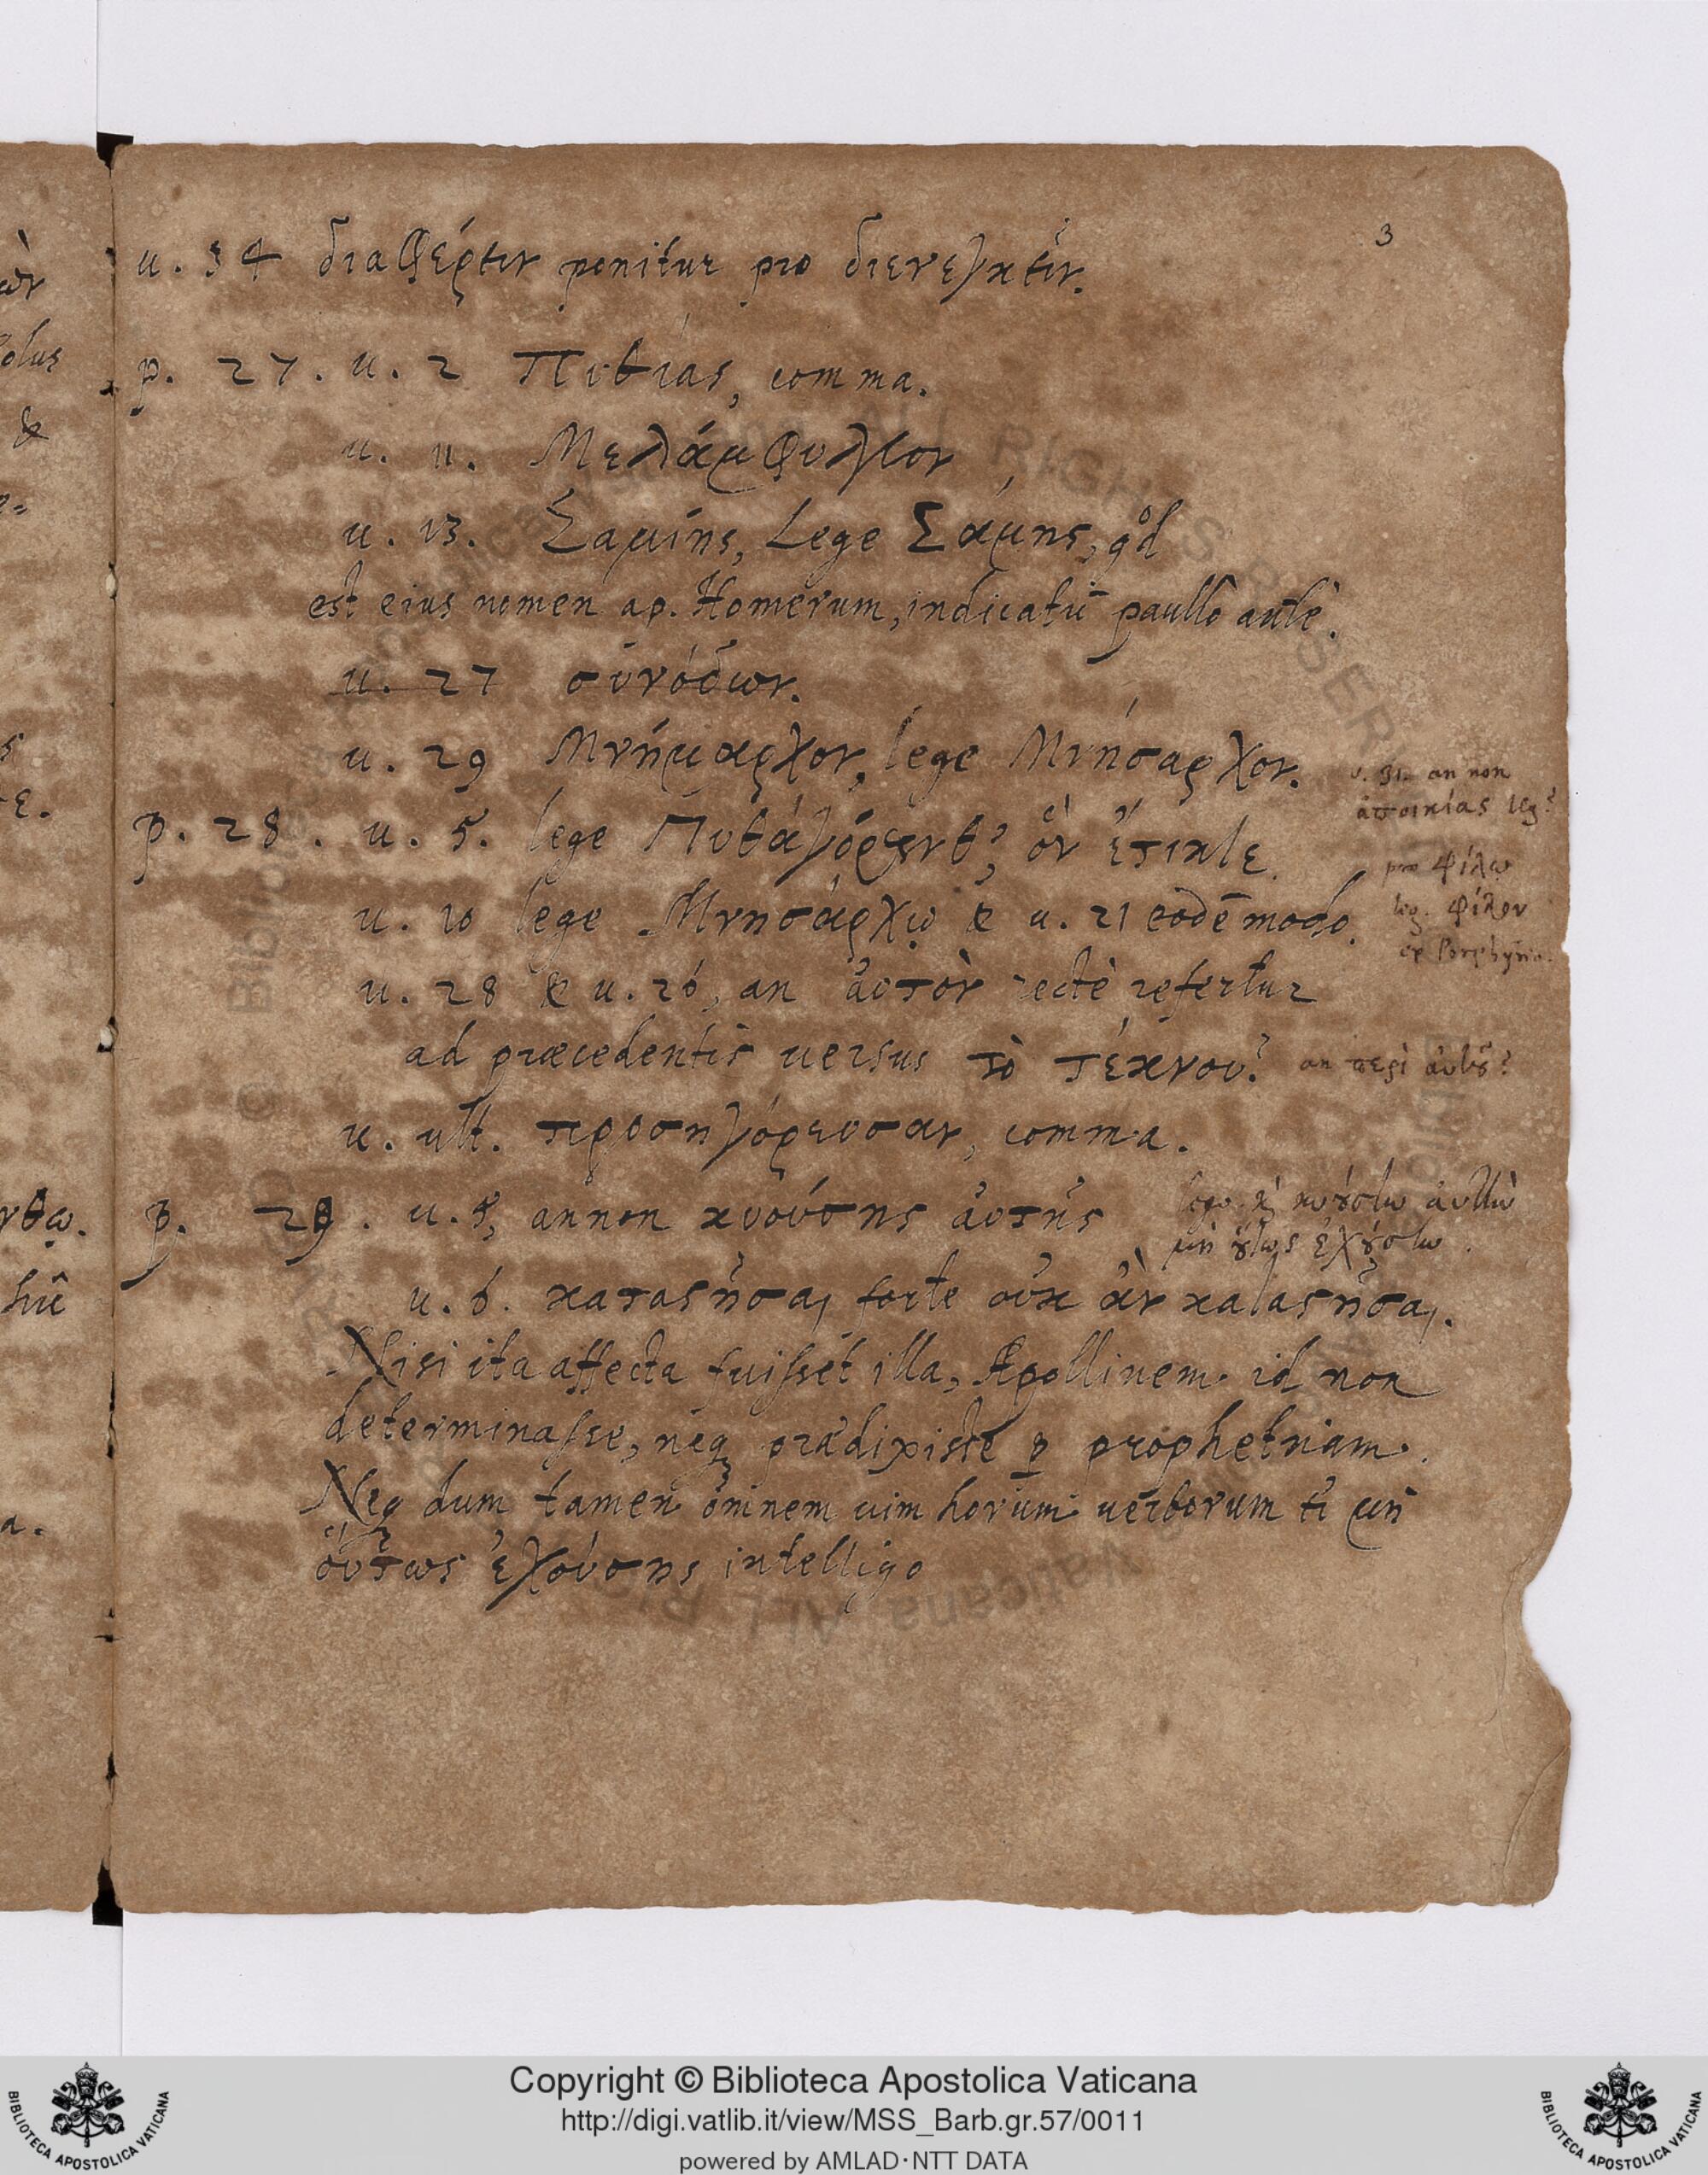 3
u. 34 διαφέρειν ponitur pro διενεγκεῖν.
p. 27. u. 2 Πυθίας, comma.
u. 11. Μελάμφυλλον
u. 13. Σαμίης, Lege Σάμης, qd
est eius nomen ap. Homerum, indicatū paullò antè.
u. 27 συνόδων.
u. 29 Μνήμαρχον, lege Μνήσαρχον.
u. 31. an non
ἀποικίας leg?
p. 28. u. 5. lege Πυθάγόρην θ', ὃν ἔτικτε.
pro φίλῳ
leg. φίλον
ex Porphyrio.
u. 10 lege Μνησάρχῳ & u. 21 eodē modo.
u. 28 & u. 26, an αὐτὸν rectè refertur
ad præcedentis uersus τὸ τέκνου? an περὶ αὐτȣ͂?
u. ult. προσηγόρευσαν, comma.
p. 29. u. 5, annon κυούσης αὐτῆς
μὴ ȣ̔́τως ἐχȣ́σης
u. 6. καταστῆσαι forte οὐκ ἂν καταστῆσαι.
Nisi ita affecta fuisset illa, Apollinem id non
determinasse, neq prædixiste p prophetriam.
Neq dum tamen omnem uim horum uerborum εἰ μὴ
οὕτως ἐχούσης intelligo
Copyright © Biblioteca Apostolica Vaticana
http://digi.vatlib.it/view/MSS_Barb.gr.57/0011
powered by AMLAD·NTT DATA
BIBLIOTECA APOSTOLICA VATICANA
BIBLIOTECA APOSTOLICA VATICANA